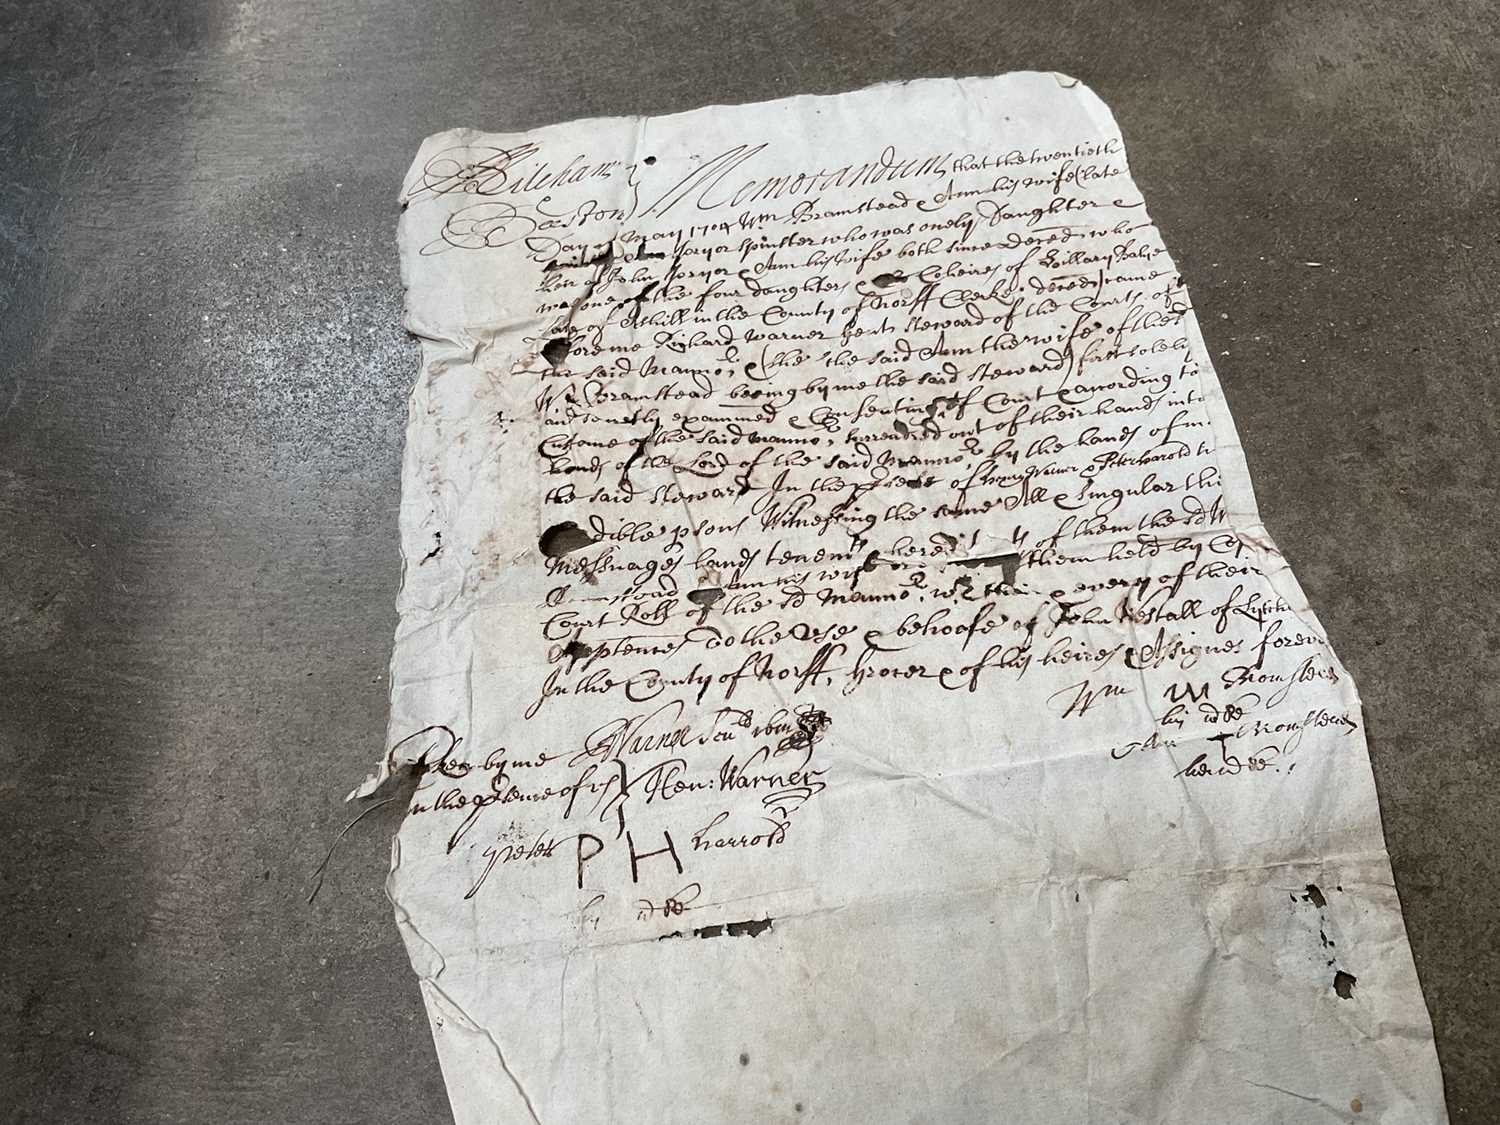 Mileham
Beeston
Memorandum that the twentieth
Day of May 1704 Wm Bramstead & Ann his wife (late
Ann spinster who was onely Daughter &
heir of John & Ann his wife both since Deceđ who
was one of the four daughters & Coheires of Baly
late of Ashill in the County of Norff Clerke deceđ) came
before me Richard Warner gent Steward of the Courts of
the said Manno.r & (she the said Ann the wife of the sd
Wm Bramstead being by me the said Steward first solely
and secretly examined & Consenting of Court & according to
Custome of the said Manno.r surrendred out of their hands into
hands of the Lord of the said Manno.r by the hands of m
the said Steward In the prsence of Henry Warner & Peter harrold
dible psons Witnessing the same All & Singular th
Messuages lands tenemts of them the sd W
Ann his wife or them held by Copy
Court Roll of the sd Manno.r & every of their
apptences To the Use & behoofe of John of
In the County of Norff, grocer & of his heires & Assignes forev
Wm M Bromsted
his
Ann T Bromsted
her
Taken by me R Warner
In the prsence of us } Hen: Warner
Peter P H harrold
his